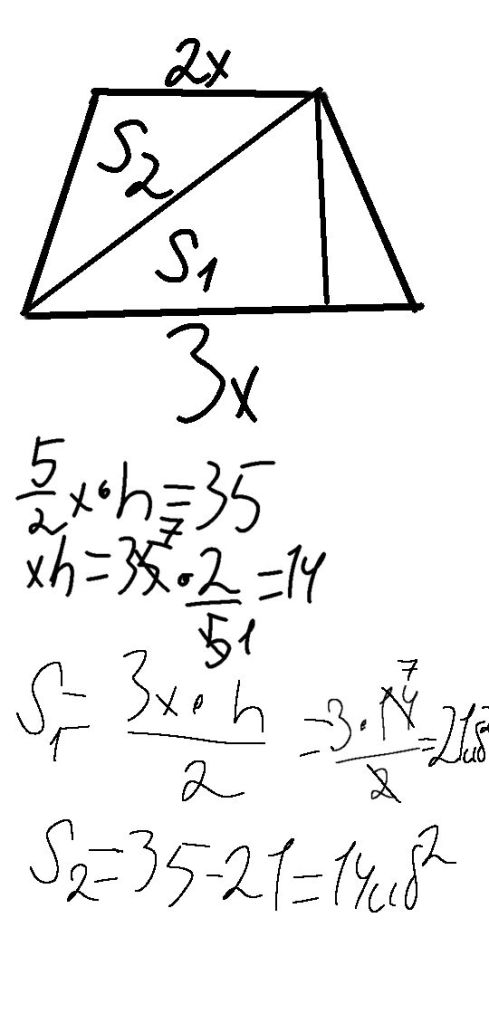 2x
S₂
S₁
3x
5/2 x·h=35
xh=35 7·2/5 1=14
S₁=3x·h/2=3·14 7/2=21
S₂=35-21=14